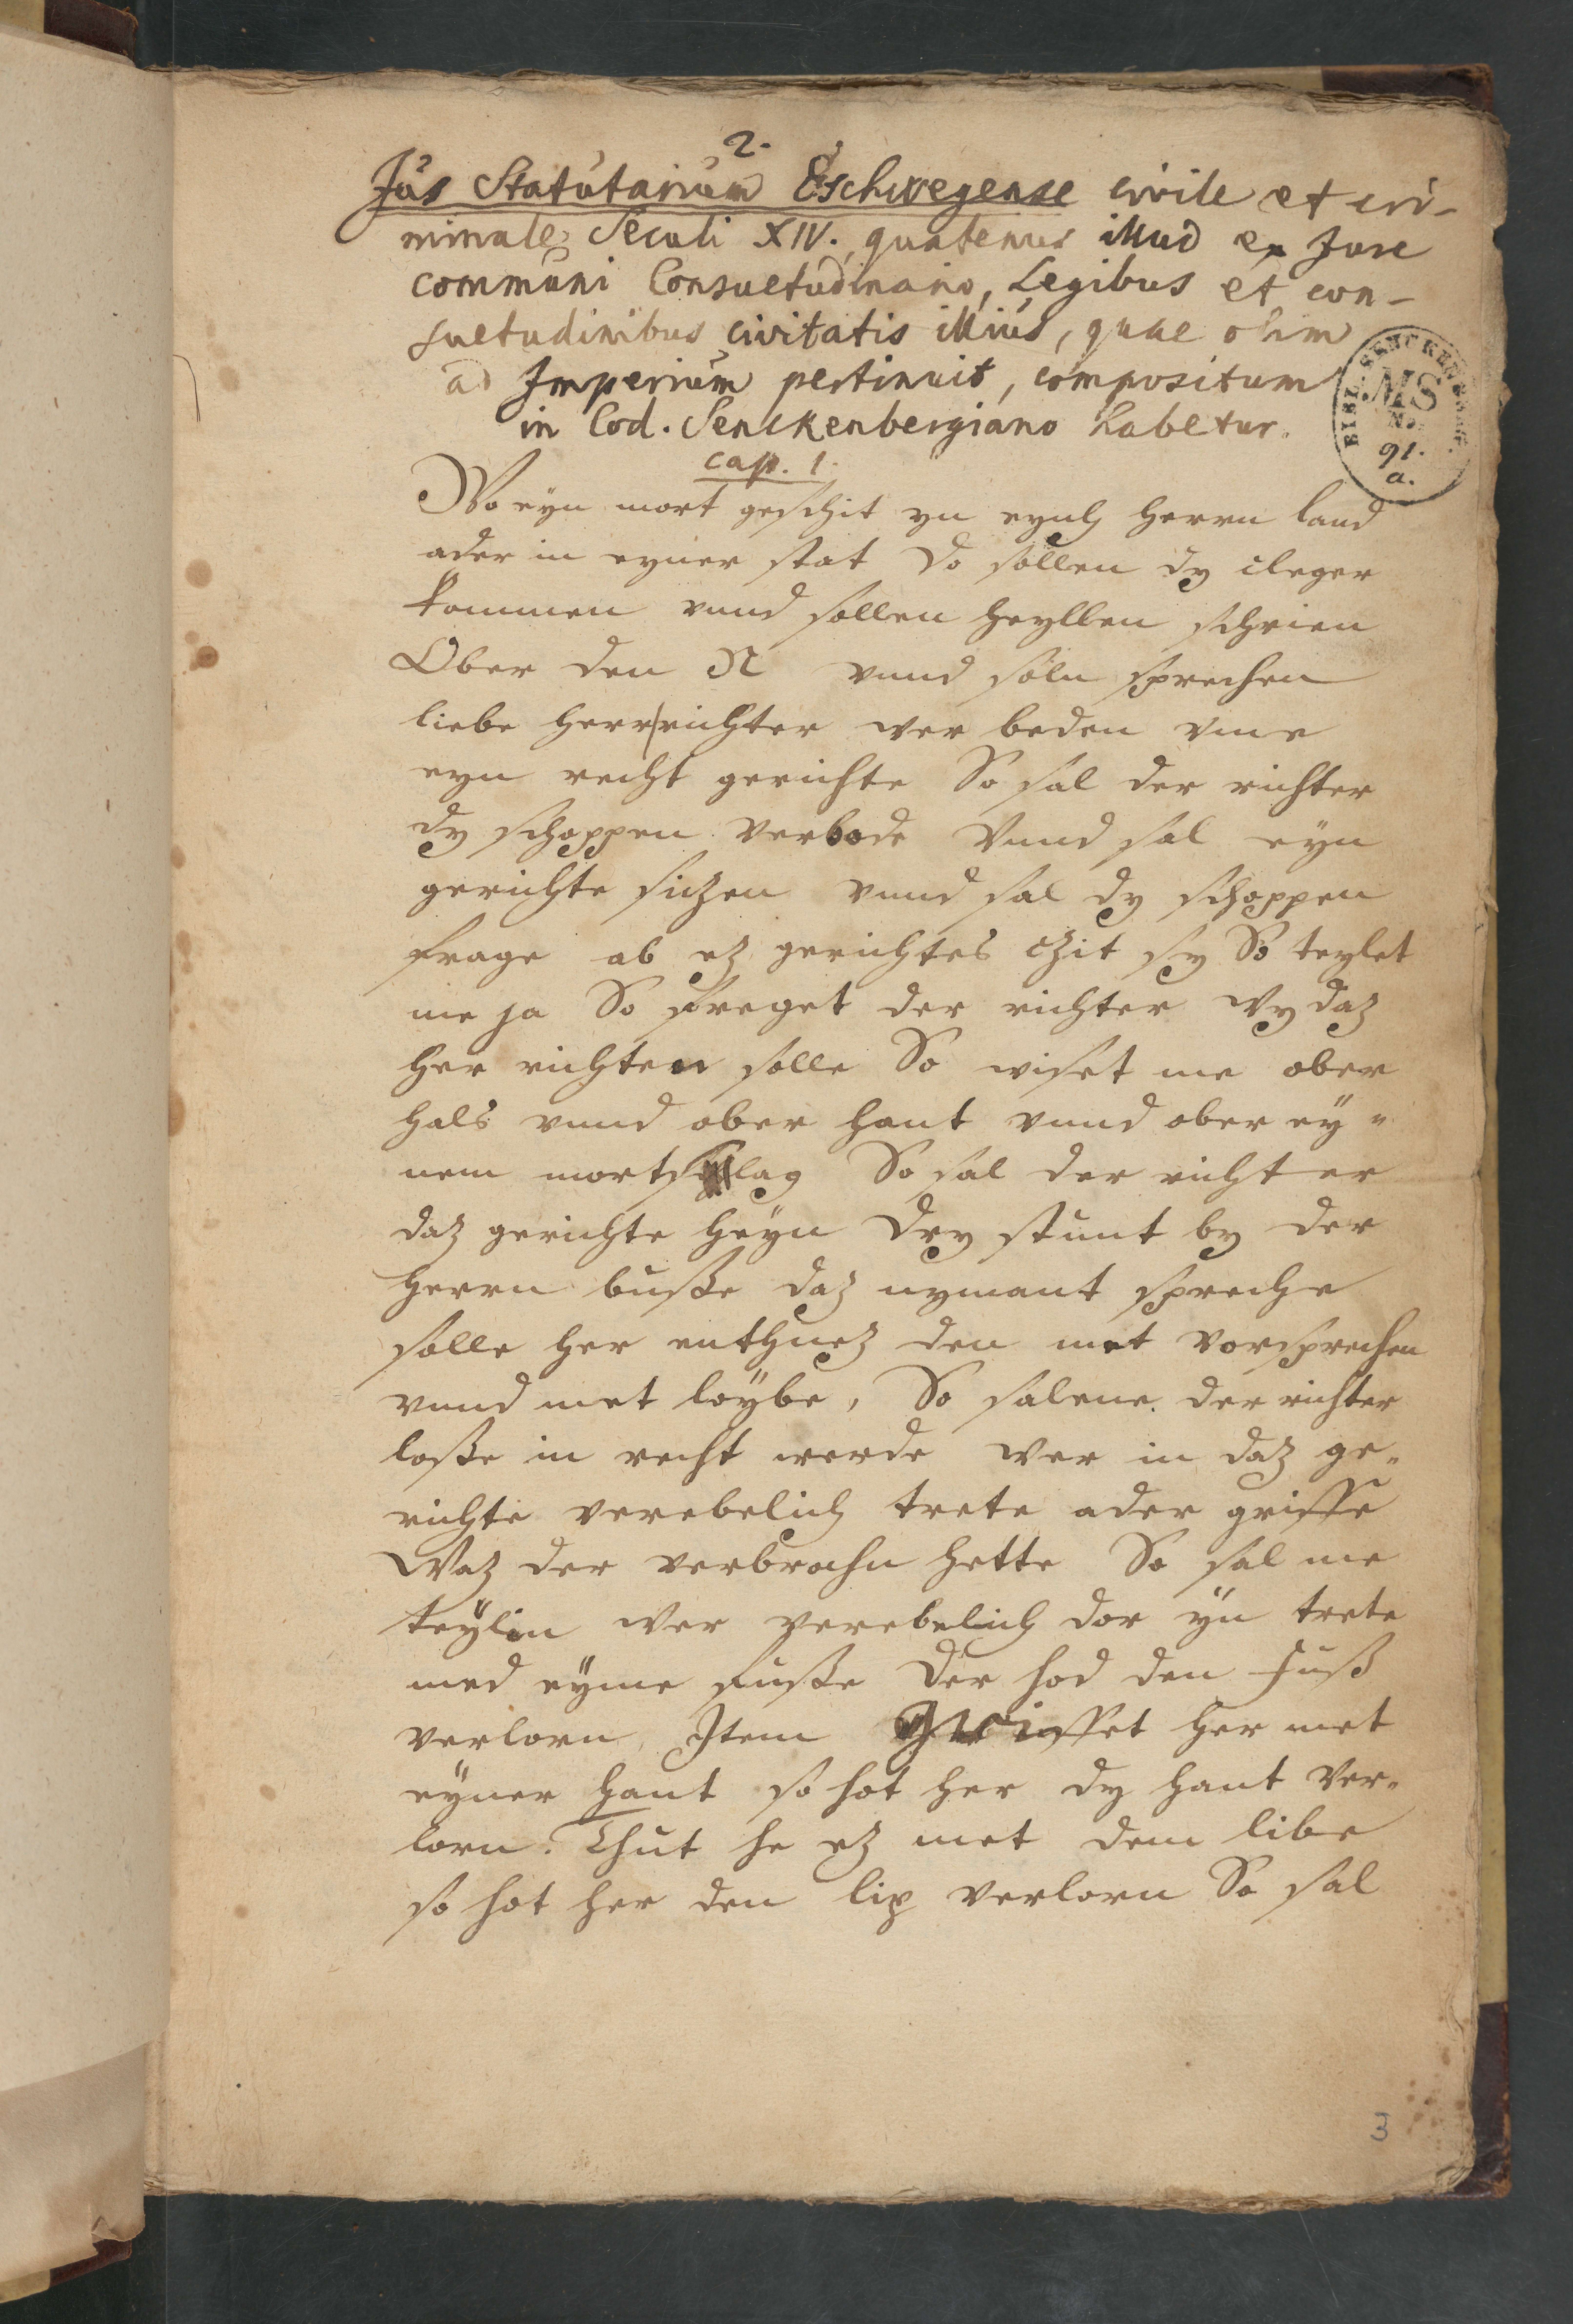 2.
Jus Statutarium Eschwegense civile et cri-
minale Seculi XIV. quatenus illud ex Jure
communi Consuetudinario, Legibus et con-
suetudinibus civitatis illius, quae olim
ad Imperium pertinuit, compositum
in Cod. Senckenbergiano habetur.
BIBL. SENCKENBERG.
MS
No.
91.
a.
cap. 1.
Wo eyn mort geschit yn eyns herrn land
ader in eyner stat Do sollen dy cleger
kommen vnnd sollen heyllen schrien
Ober den N vnnd soln sprechen
liebe herr richter wer beden vme
eyn recht gerichte So sal der richter
dy schoppen verbode Vnnd sal eyn
gerichte siczen vnnd sal dy schoppen
frage ab ez gerichtes czit sy So teylet
me ja So freget der richter wy daz
her richten solle So wiset me ober
hals vnnd ober hant vnnd ober ey-
nem mortschlag So sal der richter
daz gerichte heyn dry stunt by der
herrn busse daz nymant spreche
solle her enthuez den met vorsprechen
vnnd met loybe, So salene der richter
losse in recht werde wer in daz ge-
richte verebelich trete ader griffe
Waz der verbrochn hette So sal me
teylin wer verebelich dor yn trete
med eyme fusse Der hod den fuß
verlorn, Item Griffet her met
eyner hant so hot her dy hant ver-
lorn. Thut he ez met dem libe
so hot her den lip verlorn So sal
3